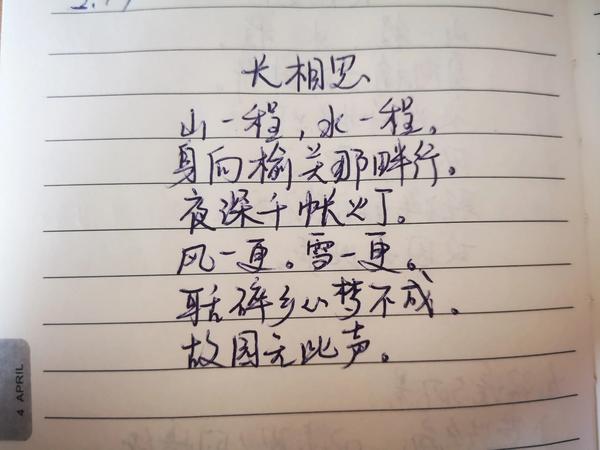 长相思
山一程，水一程。
身向榆关那畔行。
夜深千帐灯。
风一更。雪一更。
聒碎乡心梦不成。
故园无此声。
4 APRIL